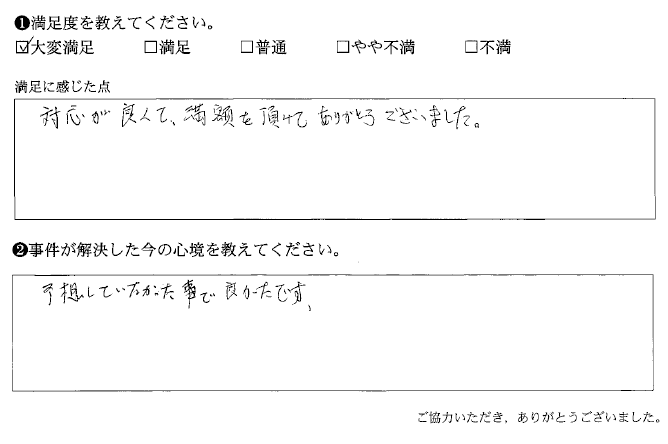 ❶満足度を教えてください。
☑大変満足 □満足 □普通 □やや不満 □不満
満足に感じた点
対応が良くて、満額を頂けてありがとうございました。
❷事件が解決した今の心境を教えてください。
予想していなかった事で良かったです。
ご協力いただき、ありがとうございました。